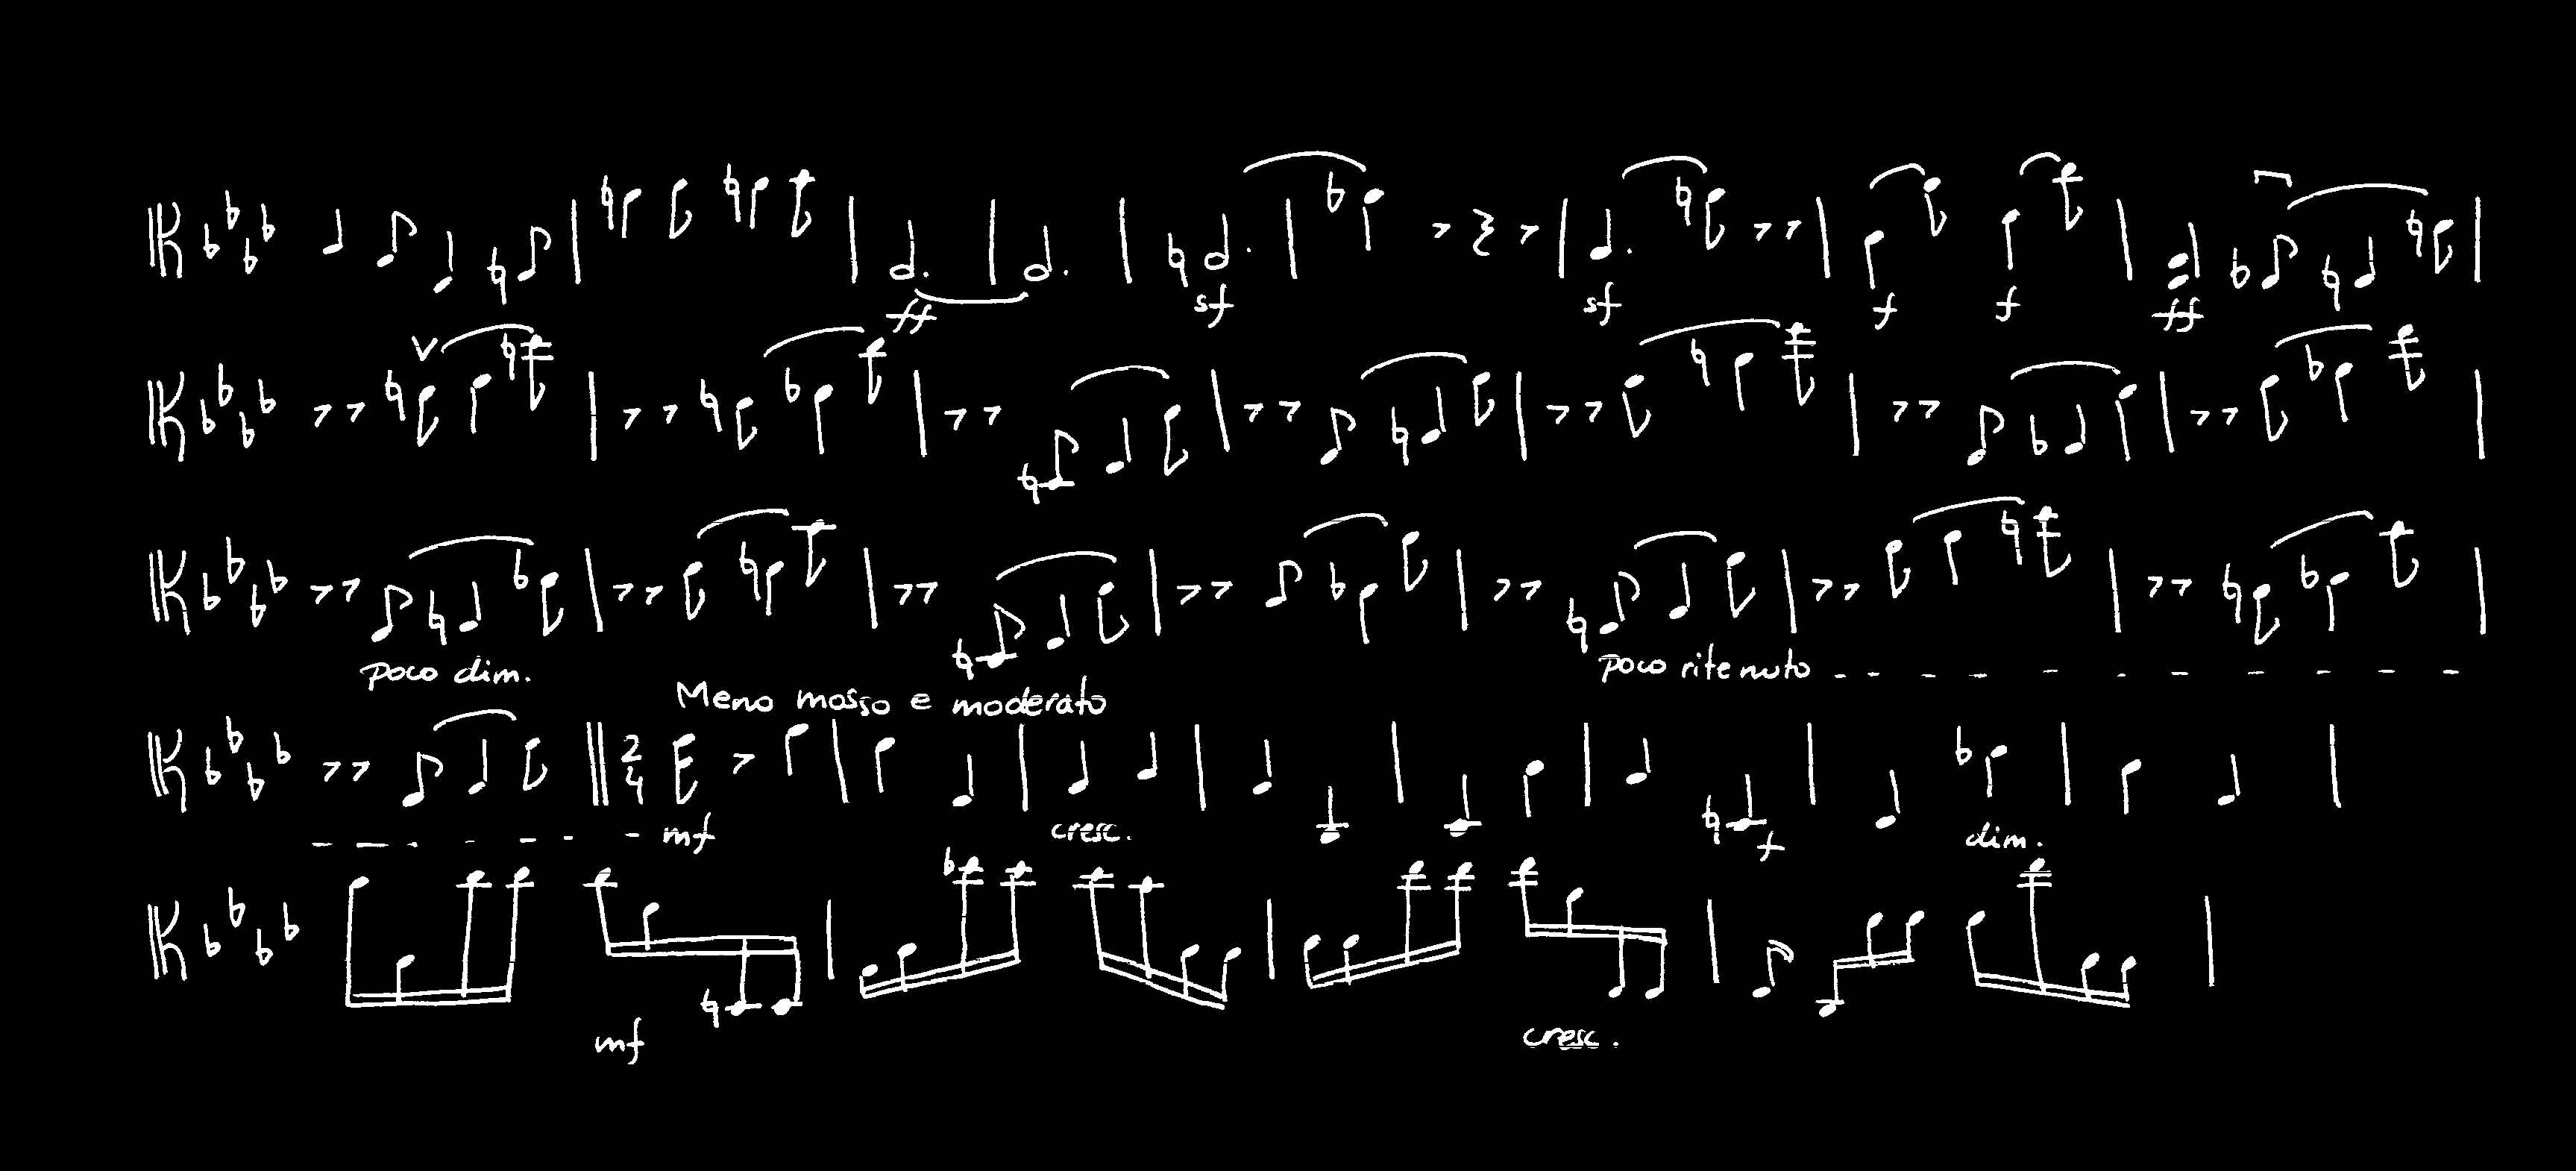 ff sf sf f f ff
poco dim. poco ritenuto
Meno mosso e moderato
2/4
mf cresc. f dim.
mf cresc.